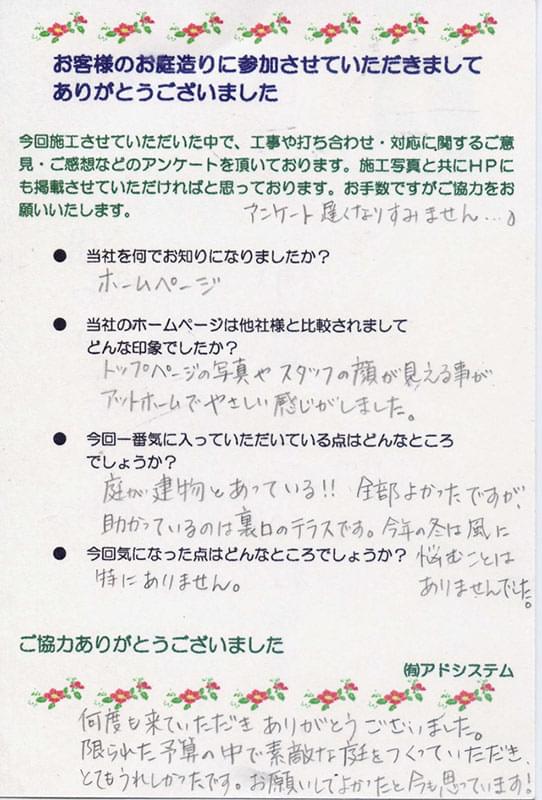 お客様のお庭造りに参加させていただきまして
ありがとうございました
今回施工させていただいた中で、工事や打ち合わせ・対応に関するご意
見・ご感想などのアンケートを頂いております。施工写真と共にHPに
も掲載させていただければと思っております。お手数ですがご協力をお
願いいたします。
アンケート遅くなりすみません…。
● 当社を何でお知りになりましたか？
ホームページ
● 当社のホームページは他社様と比較されまして
どんな印象でしたか？
トップページの写真や スタッフの顔が見える事が
アットホームでやさしい感じがしました。
● 今回一番気に入っていただいている点はどんなところ
でしょうか？
庭が建物とあっている!! 全部よかったですが、
助かっているのは裏口のテラスです。今年の冬は風に
悩むことは
ありませんでした。
● 今回気になった点はどんなところでしょうか？
特にありません。
ご協力ありがとうございました
㈲アドシステム
何度も来ていただき ありがとうございました。
限られた予算の中で素敵な庭をつくっていただき、
とてもうれしかったです。お願いしてよかったと今も思っています！